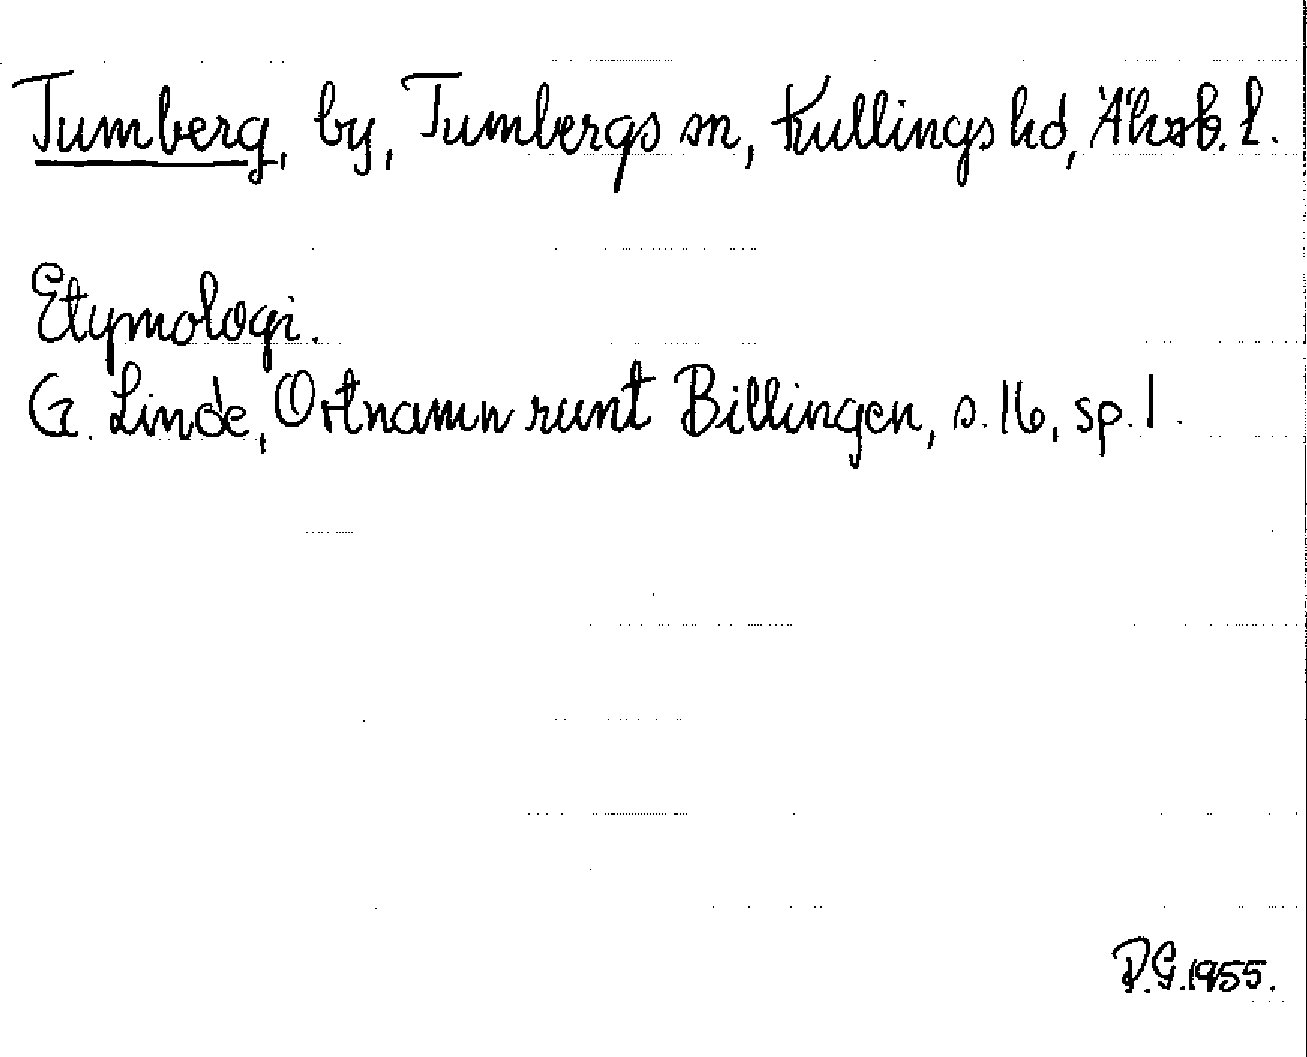 Tumberg, by, Tumbergs sn, Kullings hd, Älvsb. l.
Etymologi.
G. Linde, Ortnamn runt Billingen, s. 16, sp. 1.
P.G. 1955.